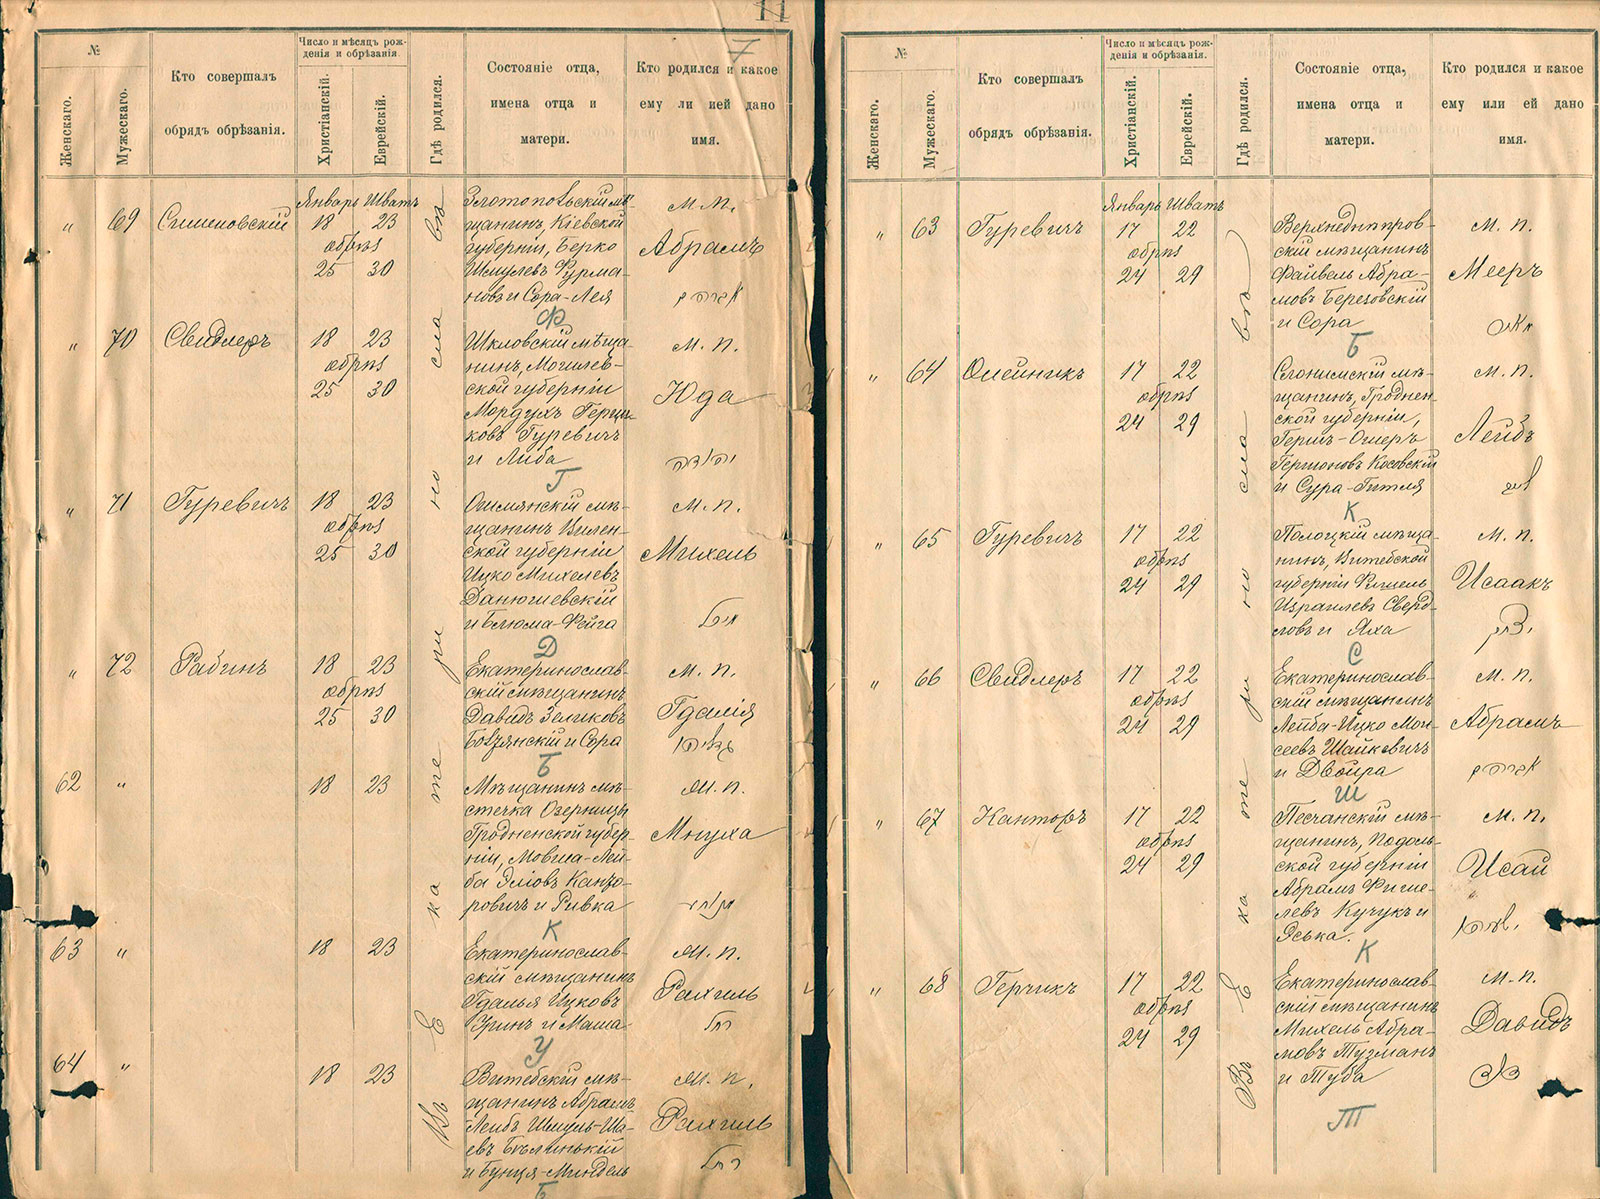 11
7
№
Женскаго.
Мужескаго.
Кто совершалъ
обрядъ обрѣзанія.
Число и мѣсяцъ рож-
денія и обрѣзанія.
Христіанскій.
Еврейскій.
Гдѣ родился.
Состояніе отца,
имена отца и
матери.
Кто родился и какое
ему ли ией дано
имя.
Январь Шватъ
Въ Екатеринославѣ
„ 69 18 23
обрѣз
25 30
Златопольскій мѣ-
щанинъ, Кіевской
губерніи, Берко
Шмулевъ Фурма-
новъ и Сора-Лея
Ф
м. п.
Абрамъ
אברהם
„ 70 Свидлеръ 18 23
обрѣз
25 30
Шкловскій мѣща-
нинъ, Могилев-
ской губерніи
Мордухъ Герци-
ковъ Гуревичъ
и Либа
Г
м. п.
Юда
יהודה
„ 71 Гуревичъ 18 23
обрѣз
25 30
Ошмянскій мѣ-
щанинъ Вилен-
ской губерніи
Ицко Михелевъ
Данюшевскій
и Блюма-Фейга
Д
м. п.
Михель
„ 72 Рабинъ 18 23
обрѣз
25 30
Екатеринослав-
скій мѣщанинъ
Давидъ Зеликовъ
и Сора
Б
м. п.
Гдалія
62 „ 18 23
Мѣщанинъ мѣ-
стечка Озерницы
Гродненской губер-
ніи, Мовша-Лей-
ба Эліовъ Канто-
ровичъ и Ривка
К
м. п.
Мнуха
63 „ 18 23
Екатеринослав-
скій мѣщанинъ
Гдалья Ицковъ
и Маша
У
м. п.
Рахиль
רחל
64 „ 18 23
Витебскій мѣ-
щанинъ Абрамъ
Лейбъ Шмуль-Ша-
евъ Бѣлинькій
и Бунця-Миндель
Б
м. п.
Рахиль
רחל
№
Женскаго.
Мужескаго.
Кто совершалъ
обрядъ обрѣзанія.
Число и мѣсяцъ рож-
денія и обрѣзанія.
Христіанскій.
Еврейскій.
Гдѣ родился.
Состояніе отца,
имена отца и
матери.
Кто родился и какое
ему или ей дано
имя.
Январь Шватъ
Въ Екатеринославѣ
„ 63 Гуревичъ 17 22
обрѣз
24 29
Верхнеднѣпров-
скій мѣщанинъ
Файвель Абра-
мовъ Березовскій
и Сора
Б
м. п.
Мееръ
„ 64 Олейникъ 17 22
обрѣз
24 29
Слонимскій мѣ-
щанинъ, Гроднен-
ской губерніи,
Гершъ-Ошеръ
Гершоновъ Косовскій
и Сура-Гитля
К
м. п.
Лейбъ
„ 65 Гуревичъ 17 22
обрѣз
24 29
Полоцкій мѣща-
нинъ, Витебской
губерніи Фишель
Израилевъ Сверд-
ловъ и Яха
С
м. п.
Исаакъ
יצחק
„ 66 Свидлеръ 17 22
обрѣз
24 29
Екатеринослав-
скій мѣщанинъ
Лейба-Ицко Мои-
сеевъ Шайкевичъ
и Двойра
Ш
м. п.
Абрамъ
אברהם
„ 67 Канторъ 17 22
обрѣз
24 29
Песчанскій мѣ-
щанинъ, Подоль-
ской губерніи
Абрамъ Фише-
левъ Кучукъ и
Эська.
К
м. п.
Исай
„ 68 Герчикъ 17 22
обрѣз
24 29
Екатеринослав-
скій мѣщанинъ
Михель Абра-
мовъ Тузманъ
и Туба
Т
м. п.
Давидъ
דוד